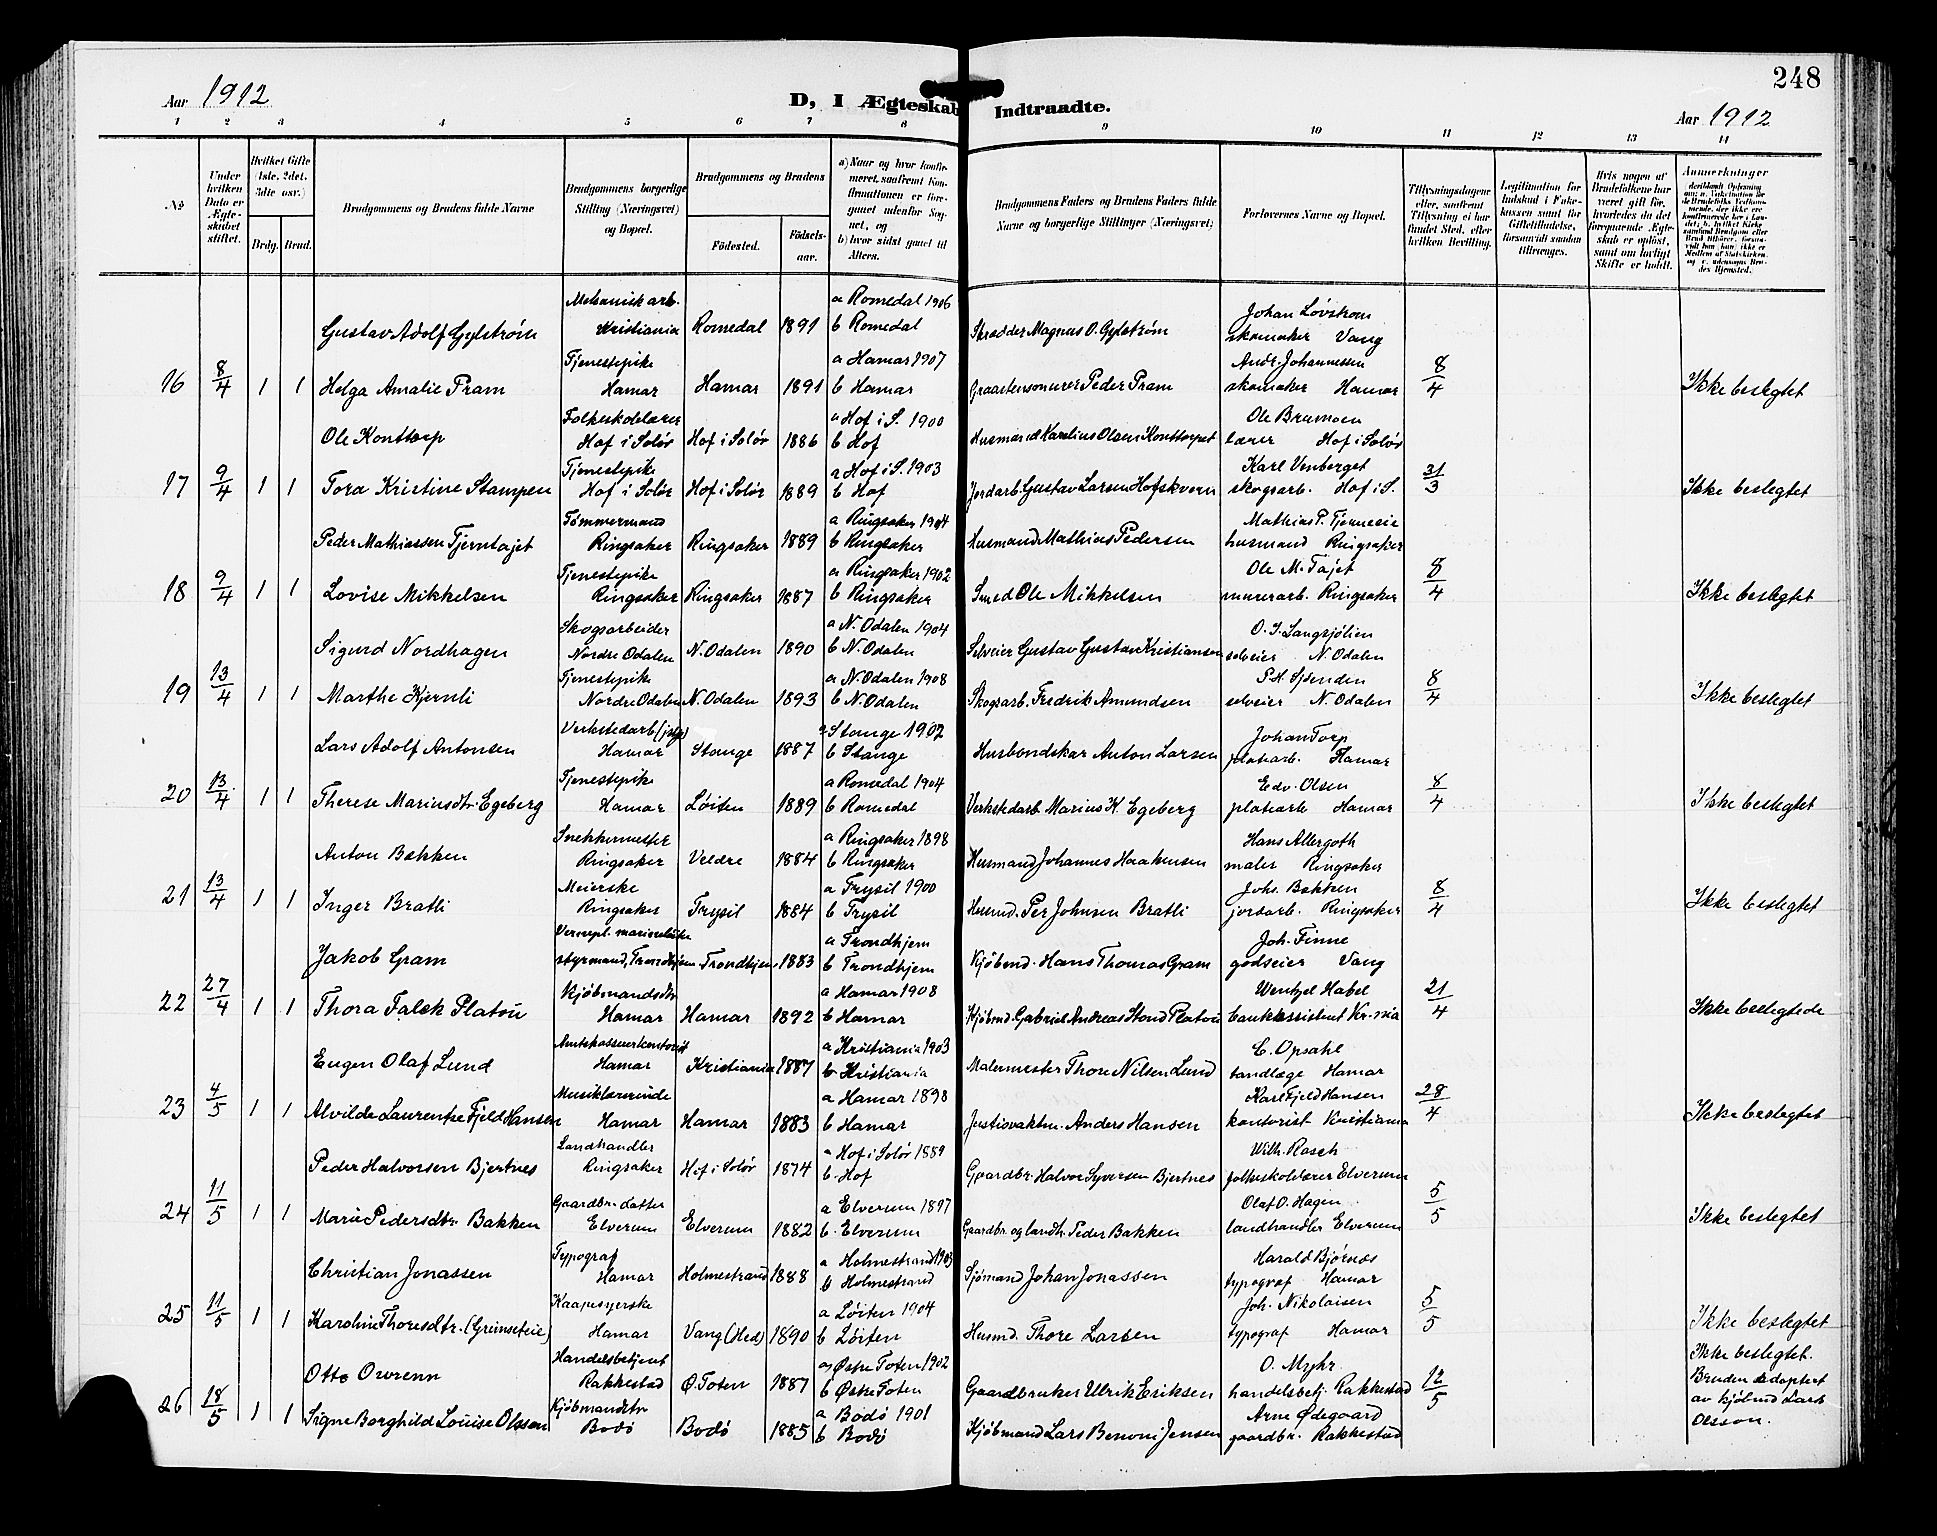 248
Aar 1912
D, I Ægteskab Indtraadte.
Aar 1912
1 2 3 4 5 6 7 8 9 10 11 12 13 14
No
Under hvilken Dato er Ægteskabet stiftet.
Hvilket Gifte (1ste, 2det, 3die osv.)
Brdg. Brud.
Brudgommens og Brudens fulde Navne
Brudgommens borgerlige Stilling (Næringsvei) og Bopæl.
Brudgommens og Brudens
Fødested.
Fødselsaar.
a) Naar og hvor konfirmeret, saafremt Konfirmationen er foregaaet udenfor Sognet, og
b) hvor sidst gaaet til Alters.
Brudgommens Faders og Brudens Faders fulde Navne og borgerlige Stillinger (Næringsvei)
Forlovernes Navne og Bopæl.
Tillysningsdagene eller, saafremt Tillysning ei har fundet Sted, efter hvilken Bevilling.
Legitimation for Indskud i Enkekassen samt for Giftetilladelse, forsaavidt saadan tiltrænges.
Hvis nogen af Brudefolkene har været gift før, hvorledes da det foregaaende Ægteskab er opløst, samt om lovligt Skifte er holdt.
Anmærkninger
Gustav Adolf Gylstrøm Mekanisk arb. Kristiania Romedal 1891 a Romedal 1906 b Romedal Skrædder Magnus O. Gylstrøm Johan Løvstrøm skomaker Vang
16 8/4 1 1 Helga Amalie Fram Tjenestepike Hamar Hamar 1891 a Hamar 1907 b Hamar Graastensmurer Peder Fram Andr. Johannessen skomaker Hamar 8/4 Ikke beslegtet
Ole Konttorp Folkeskolelærer Hof i Solør Hof i Solør 1886 a Hof i S. 1900 b Hof Husmand Karelius Olsen Konttorpet Ole Brumoen lærer Hof i Solør
17 9/4 1 1 Tora Kristine Stampen Tjenestepike Hof i Solør Hof i Solør 1889 a Hof i S. 1903 b Hof Jordarb. Gustav Larsen Hofskvern Karl Venberget skogsarb. Hof i S. 31/3 Ikke beslegtet
Peder Mathiassen Tjerntajet Tømmermand Ringsaker Ringsaker 1889 a Ringsaker 1904 b Ringsaker Husmand Mathias Pedersen Mathias P. Tjerneeie husmand Ringsaker
18 9/4 1 1 Lovise Mikkelsen Tjenestepike Ringsaker Ringsaker 1887 a Ringsaker 1902 b Ringsaker Smed Ole Mikkelsen Ole M. Tajet murerarb. Ringsaker 8/4 Ikke beslegtet
Sigurd Nordhagen Skogsarbeider Nordre Odalen N. Odalen 1890 a N. Odalen 1904 b N. Odalen Selveier Gustav Gustav Kristiansen O. J. Langsjølien selveier N. Odalen
19 13/4 1 1 Marthe Kjernli Tjenestepike Nordre Odalen N. Odalen 1893 a N. Odalen 1908 b N. Odalen Skogsarb. Fredrik Amundsen P. H. Sjøenden selveier N. Odalen 8/4 Ikke beslegtet
Lars Adolf Antonsen Verkstedarb Hamar Stange 1887 a Stange 1902 b Stange Husbondskar Anton Larsen Johan Torp platearb. Hamar
20 13/4 1 1 Therese Mariusdtr. Egeberg Tjenestepike Hamar Løiten 1889 a Romedal 1904 b Romedal Verkstedarb Marius K. Egeberg Edv. Olsen platearb Hamar 8/4 Ikke beslegtet
Anton Bakken Snekkermester Ringsaker Veldre 1884 a Ringsaker 1898 b Ringsaker Husmand Johannes Haakensen Hans Allergoth maler Ringsaker
21 13/4 1 1 Inger Bratli Meierske Ringsaker Trysil 1884 a Trysil 1900 b Trysil Husmd. Per Johnsen Bratli Johs. Bakken jordarb. Ringsaker 8/4 Ikke beslegtet
Jakob Gram styrmand, Trondhjem Trondhjem 1883 a Trondhjem b Trondhjem Kjøbmd. Hans Thomas Gram Joh. Finne godseier Vang
22 27/4 1 1 Thora Falck Platou Kjøbmandsdtr Hamar Hamar 1892 a Hamar 1908 b Hamar Kjøbmd. Gabriel Andreas Stoud Platou Wentzel Habel bankassistent Kr-nia 21/4 Ikke beslegtede
Eugen Olaf Lund Amtskasserkontorist Hamar Kristiania 1887 a Kristiania 1903 b Kristiania Malermester Thore Nilsen Lund C. Opsahl tandlæge Hamar
23 4/5 1 1 Alvilde Laurentze Fjeld Hansen Musiklærerinde Hamar Hamar 1883 a Hamar 1898 b Hamar Justisvaktm. Anders Hansen Karl Fjeld Hansen kontorist Kristiania 28/4 Ikke beslegtet
Peder Halvorsen Bjertnes Landhandler Ringsaker Hof i Solør 1874 a Hof i Solør 1889 b. Hof Gaardbr. Halvor Syversen Bjertnes Wilh. Rasch folkeskolelærer Elverum
24 11/5 1 1 Marie Pedersdtr. Bakken Gaardbr. datter Elverum Elverum 1882 a Elverum 1897 b. Elverum Gaardbr. og landh. Peder Bakken Olaf O. Hagen landhandler Elverum 5/5 Ikke beslegtet
Christian Jonassen Typograf Hamar Holmestrand 1888 a Holmestrand 1903 b Holmestrand Sjømand Johan Jonassen Harald Bjørnæs typograf Hamar
25 11/5 1 1 Karoline Thoresdtr. (Grimseteie) Kaapesyerske Hamar Vang (Hed) 1890 a Løiten 1904 b Løiten Husmd. Thore Larsen Joh. Nikolaisen typograf Hamar 5/5 Ikke beslegtet
Otto Owrenn Handelsbetjent Rakkestad Ø. Toten 1887 a Østre Toten 1902 b Østre Toten Gaardbruker Ulrik Eriksen O. Myhr handelsbetj. Rakkestad
26 18/5 1 1 Signe Borghild Louise Olsson Kjøbmandsdtr Bodø Bodø 1885 a Bodø 1901 b Bodø Kjøbmand Lars Benoni Jensen Arne Ødegaard gaardbr. Rakkestad 12/5 Ikke beslegtet. Bruden adoptert av kjøbmd Lars Olsson.